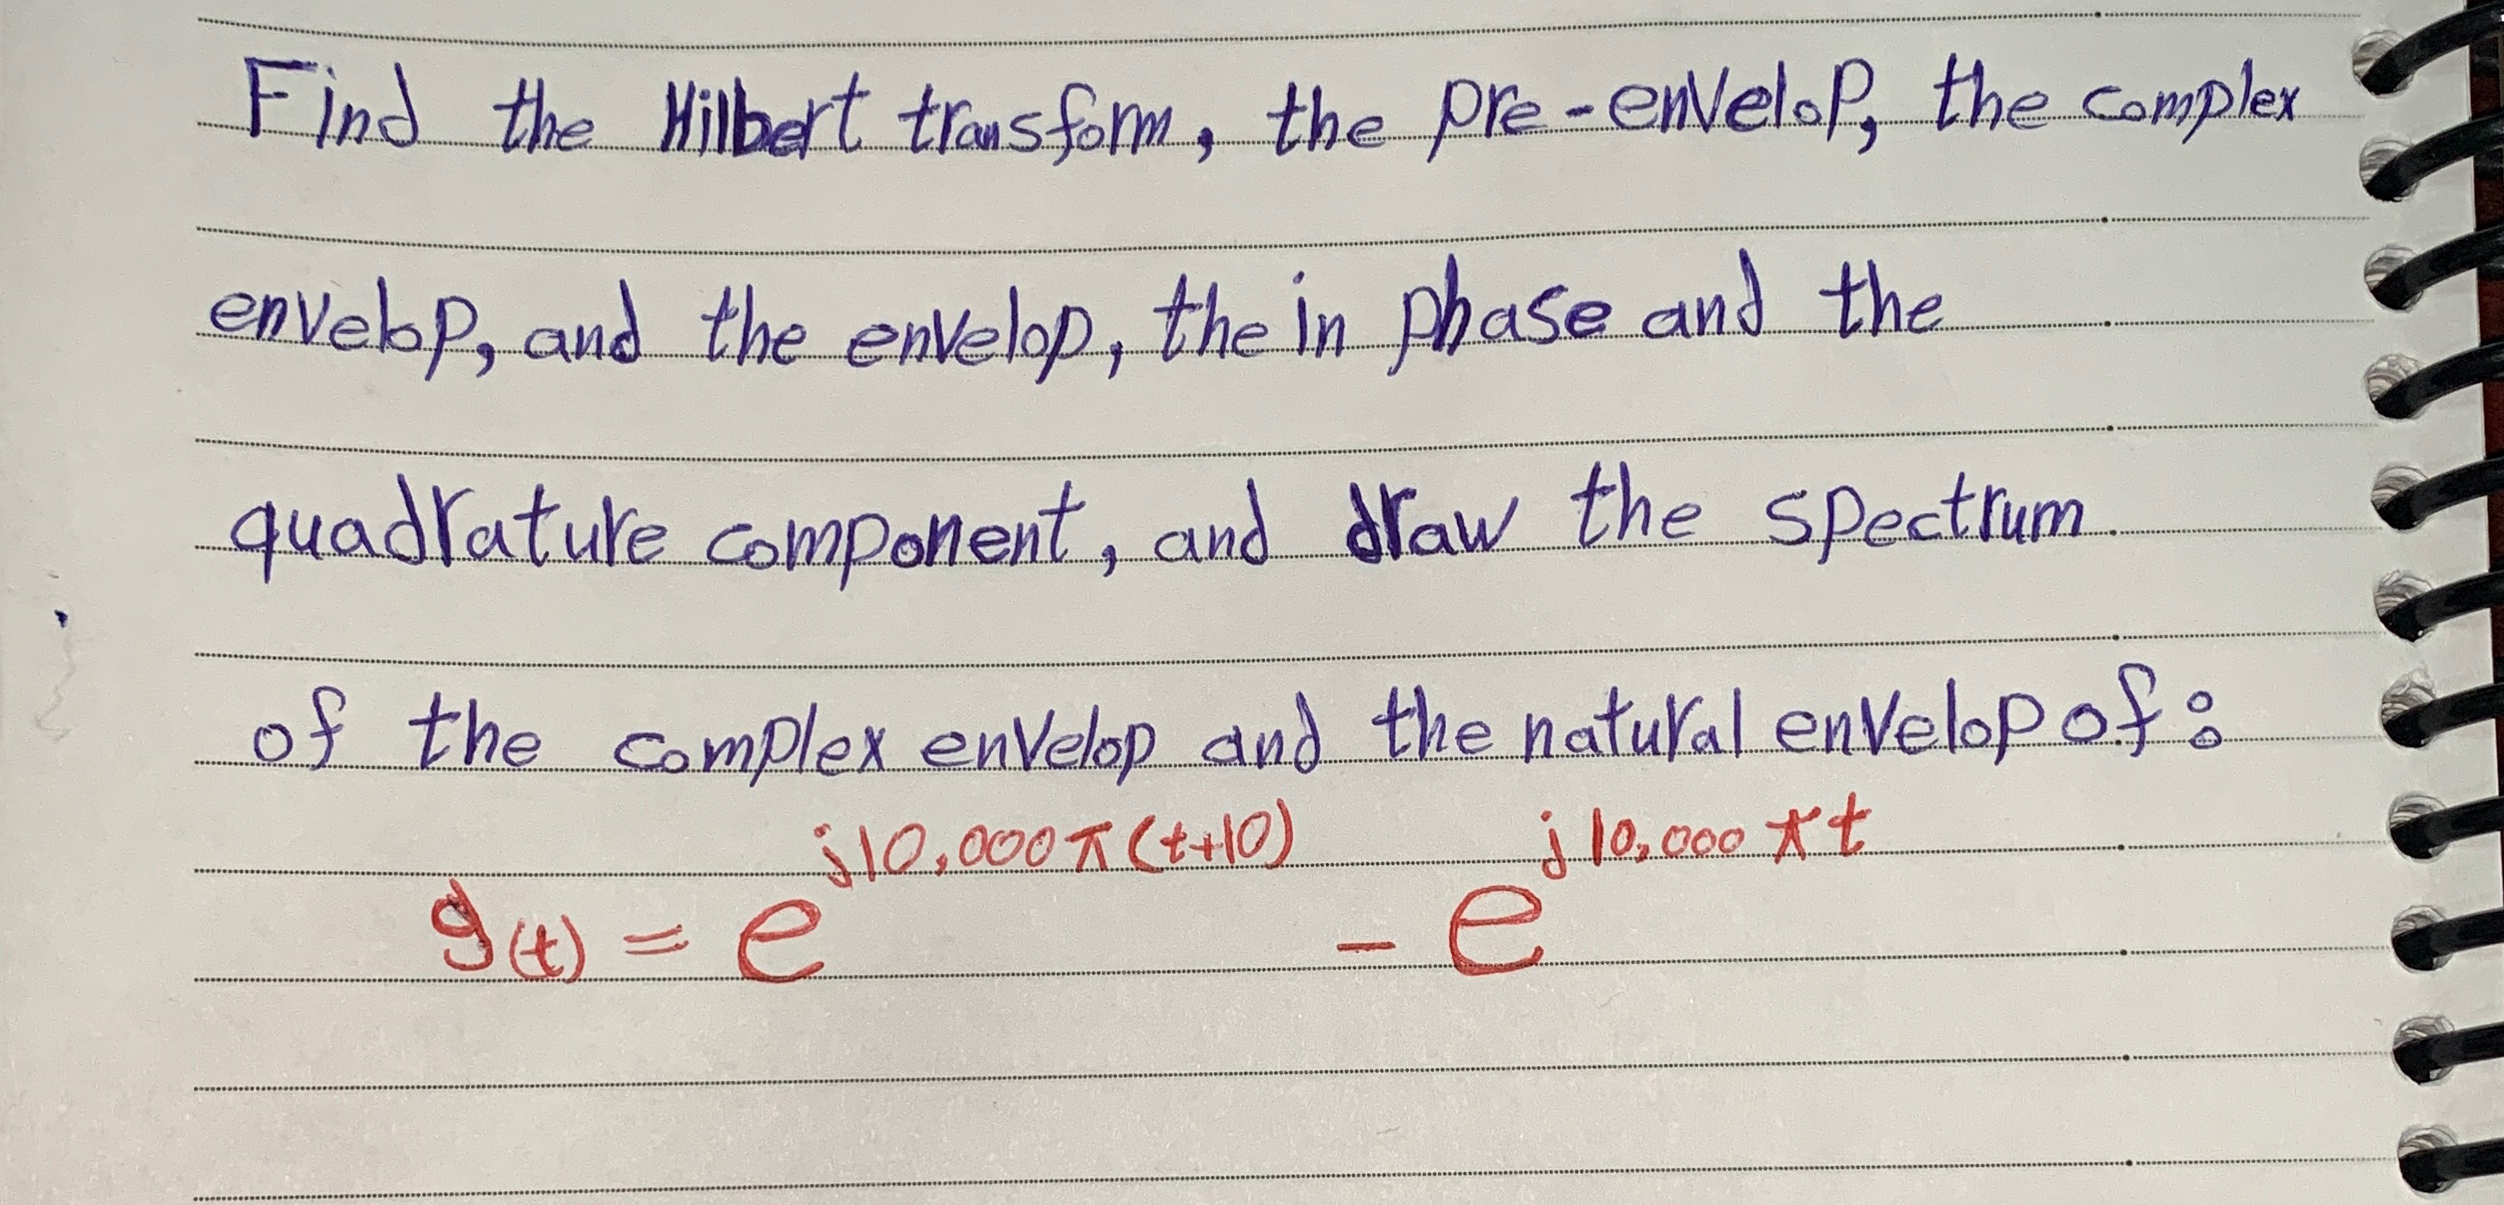 Find the Hilbert transform, the pre-envelop, the complex
envelop, and the envelop, the in phase and the
quadrature component, and draw the spectrum.
of the complex envelop and the natural envelop of:
g(t) = e^{j10,000π(t+10)} - e^{j10,000πt}